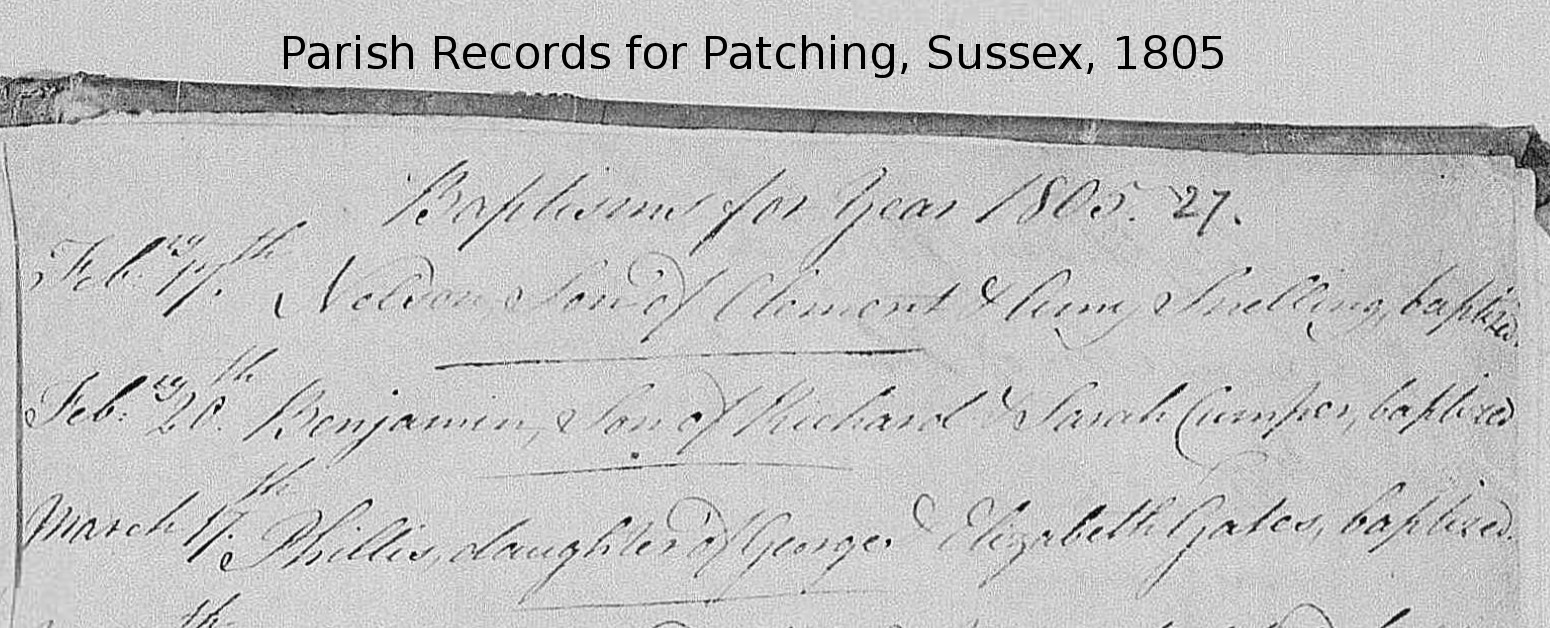 Parish Records for Patching, Sussex, 1805
Baptisms for Year 1805. 27.
Feb.ry 17.th Nelson, Son of Clement & Amy Snelling, baptized.
Feb.ry 20.th Benjamin, Son of Richard & Sarah Cumper, baptized
March 17.th Phillis, daughter of George & Elizabeth Gates, baptized.